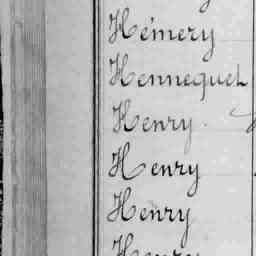 Hémery
Hennequet
Henry.
Henry
Henry
Henry